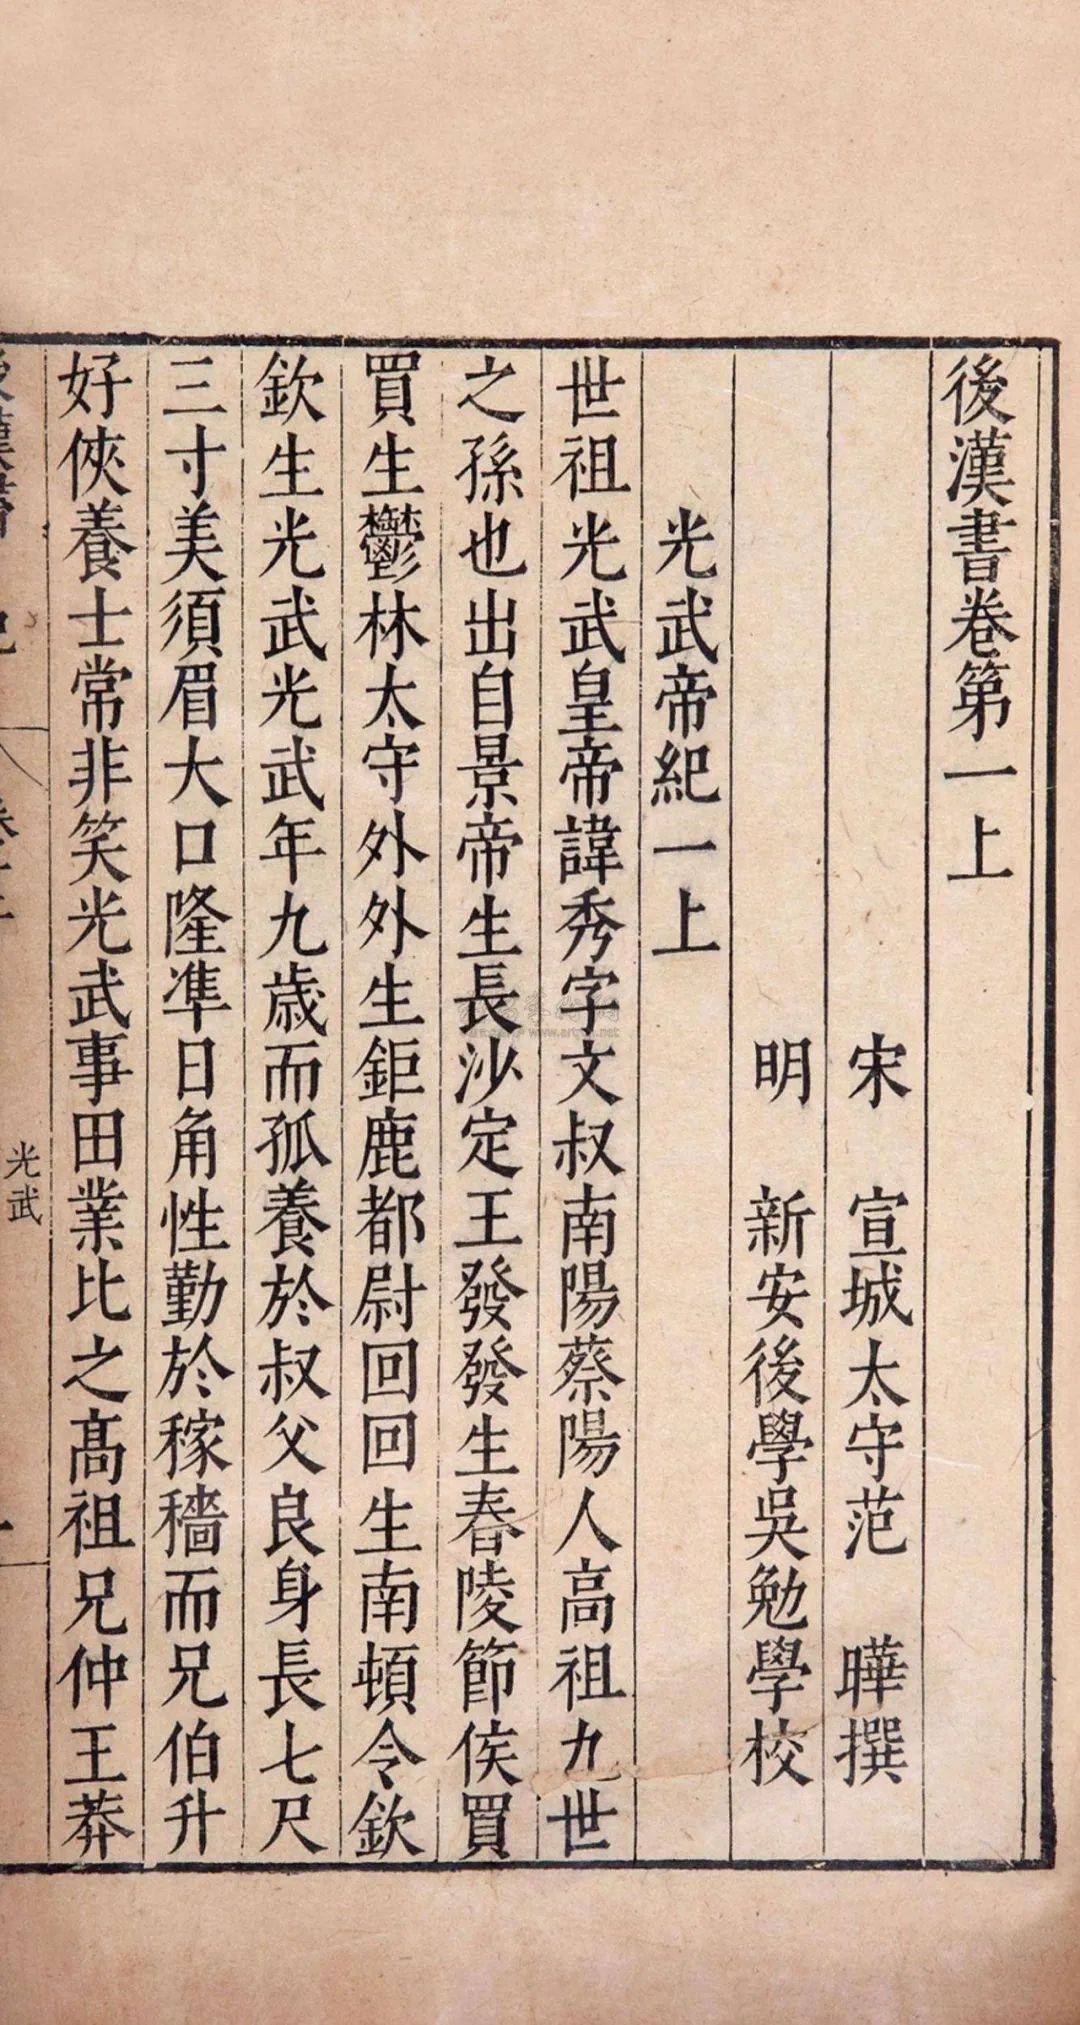 後漢書卷第一上
宋 宣城太守范 曄撰
明 新安後學吳勉學校
光武帝紀一上
世祖光武皇帝諱秀字文叔南陽蔡陽人高祖九世
之孫也出自景帝生長沙定王發發生舂陵節侯買
買生鬱林太守外外生鉅鹿都尉回回生南頓令欽
欽生光武光武年九歲而孤養於叔父良身長七尺
三寸美須眉大口隆準日角性勤於稼穡而兄伯升
好俠養士常非笑光武事田業比之髙祖兄仲王莽
光武